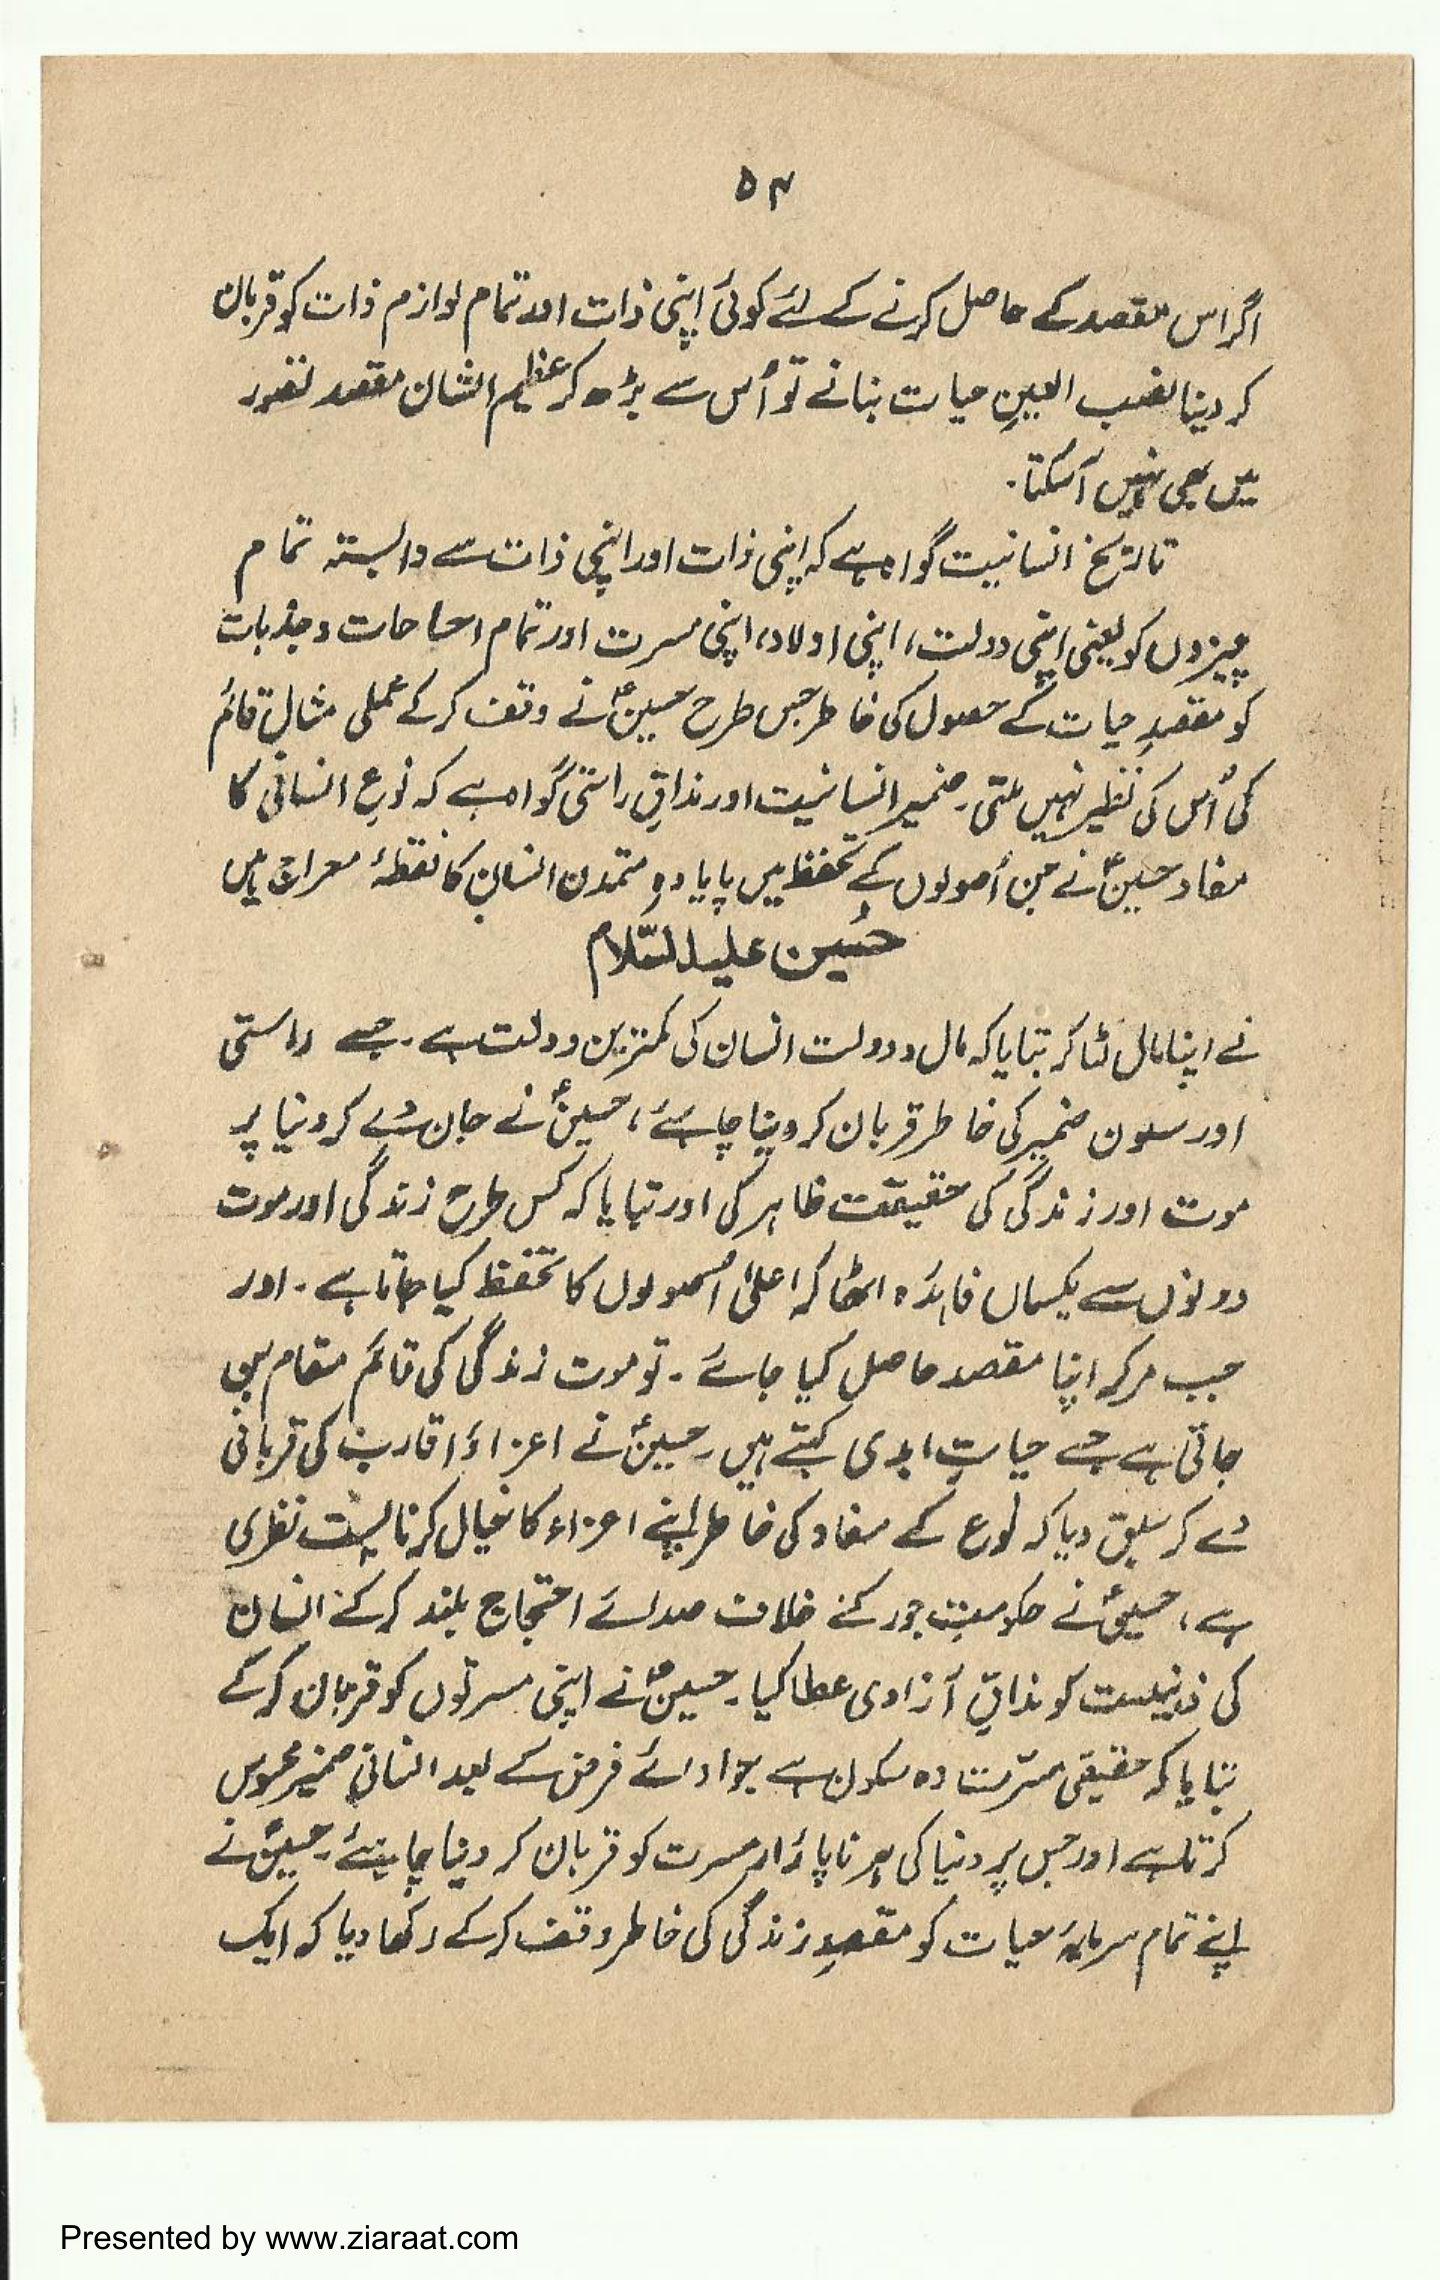 ۵۴
اگر اس مقصد کے حاصل کرنے کے لئے کوئی اپنی ذات اور تمام لوازم ذات کو قربان
کر دینا نصب العینِ حیات بنانے تو اُس سے بڑھ کر عظیم الشان مقصد تصور
میں بھی نہیں آسکتا۔
تاریخ انسانیت گواہ ہے کہ اپنی ذات اور اپنی ذات سے وابستہ تمام
چیزوں کو یعنی اپنی دولت، اپنی اولاد، اپنی مسرت اور تمام احساسات و جذبات
کو مقصدِ حیات کے حصول کی خاطر جس طرح حسینؑ نے وقف کر کے عملی مثال قائم
کی اُس کی نظیر نہیں ملتی۔ ضمیر انسانیت اور مذاقِ راستی گواہ ہے کہ نوعِ انسانی کا
مفاد حسینؑ نے جن اُصولوں کے تحفظ میں پایا وہ متمدن انسان کا نقطۂ معراج ہیں
حُسین علیہ السّلام
نے اپنا مال لٹا کر بتایا کہ مال و دولت انسان کی کمترین دولت ہے۔ جسے راستی
اور سکون ضمیر کی خاطر قربان کر دینا چاہئے، حسینؑ نے جان دے کر دنیا پر
موت اور زندگی کی حقیقت ظاہر کی اور بتایا کہ کس طرح زندگی اور موت
دونوں سے یکساں فائدہ اٹھا کر اعلیٰ اُصولوں کا تحفظ کیا جاتا ہے۔ اور
جب مر کر اپنا مقصد حاصل کیا جائے۔ تو موت زندگی کی قائم مقام بن
جاتی ہے جسے حیاتِ ابدی کہتے ہیں۔ حسینؑ نے اعزاء و اقارب کی قربانی
دے کر سبق دیا کہ نوع کے مفاد کی خاطر اپنے اعزاء کا خیال کرنا پست نظری
ہے، حسینؑ نے حکومتِ جور کے خلاف صدائے احتجاج بلند کر کے انسان
کی ذہنیت کو مذاقِ آزادی عطا کیا۔ حسینؑ نے اپنی مسرتوں کو قربان کر کے
بتایا کہ حقیقی مسّرت وہ سکون ہے جو ادائے فرض کے بعد انسانی ضمیر محسوس
کرتا ہے اور جس پر دنیا کی ہر ناپائدار مسرت کو قربان کر دینا چاہئے۔ حسینؑ نے
اپنے تمام سرمایۂ حیات کو مقصدِ زندگی کی خاطر وقف کر کے دکھا دیا کہ ایک
Presented by www.ziaraat.com